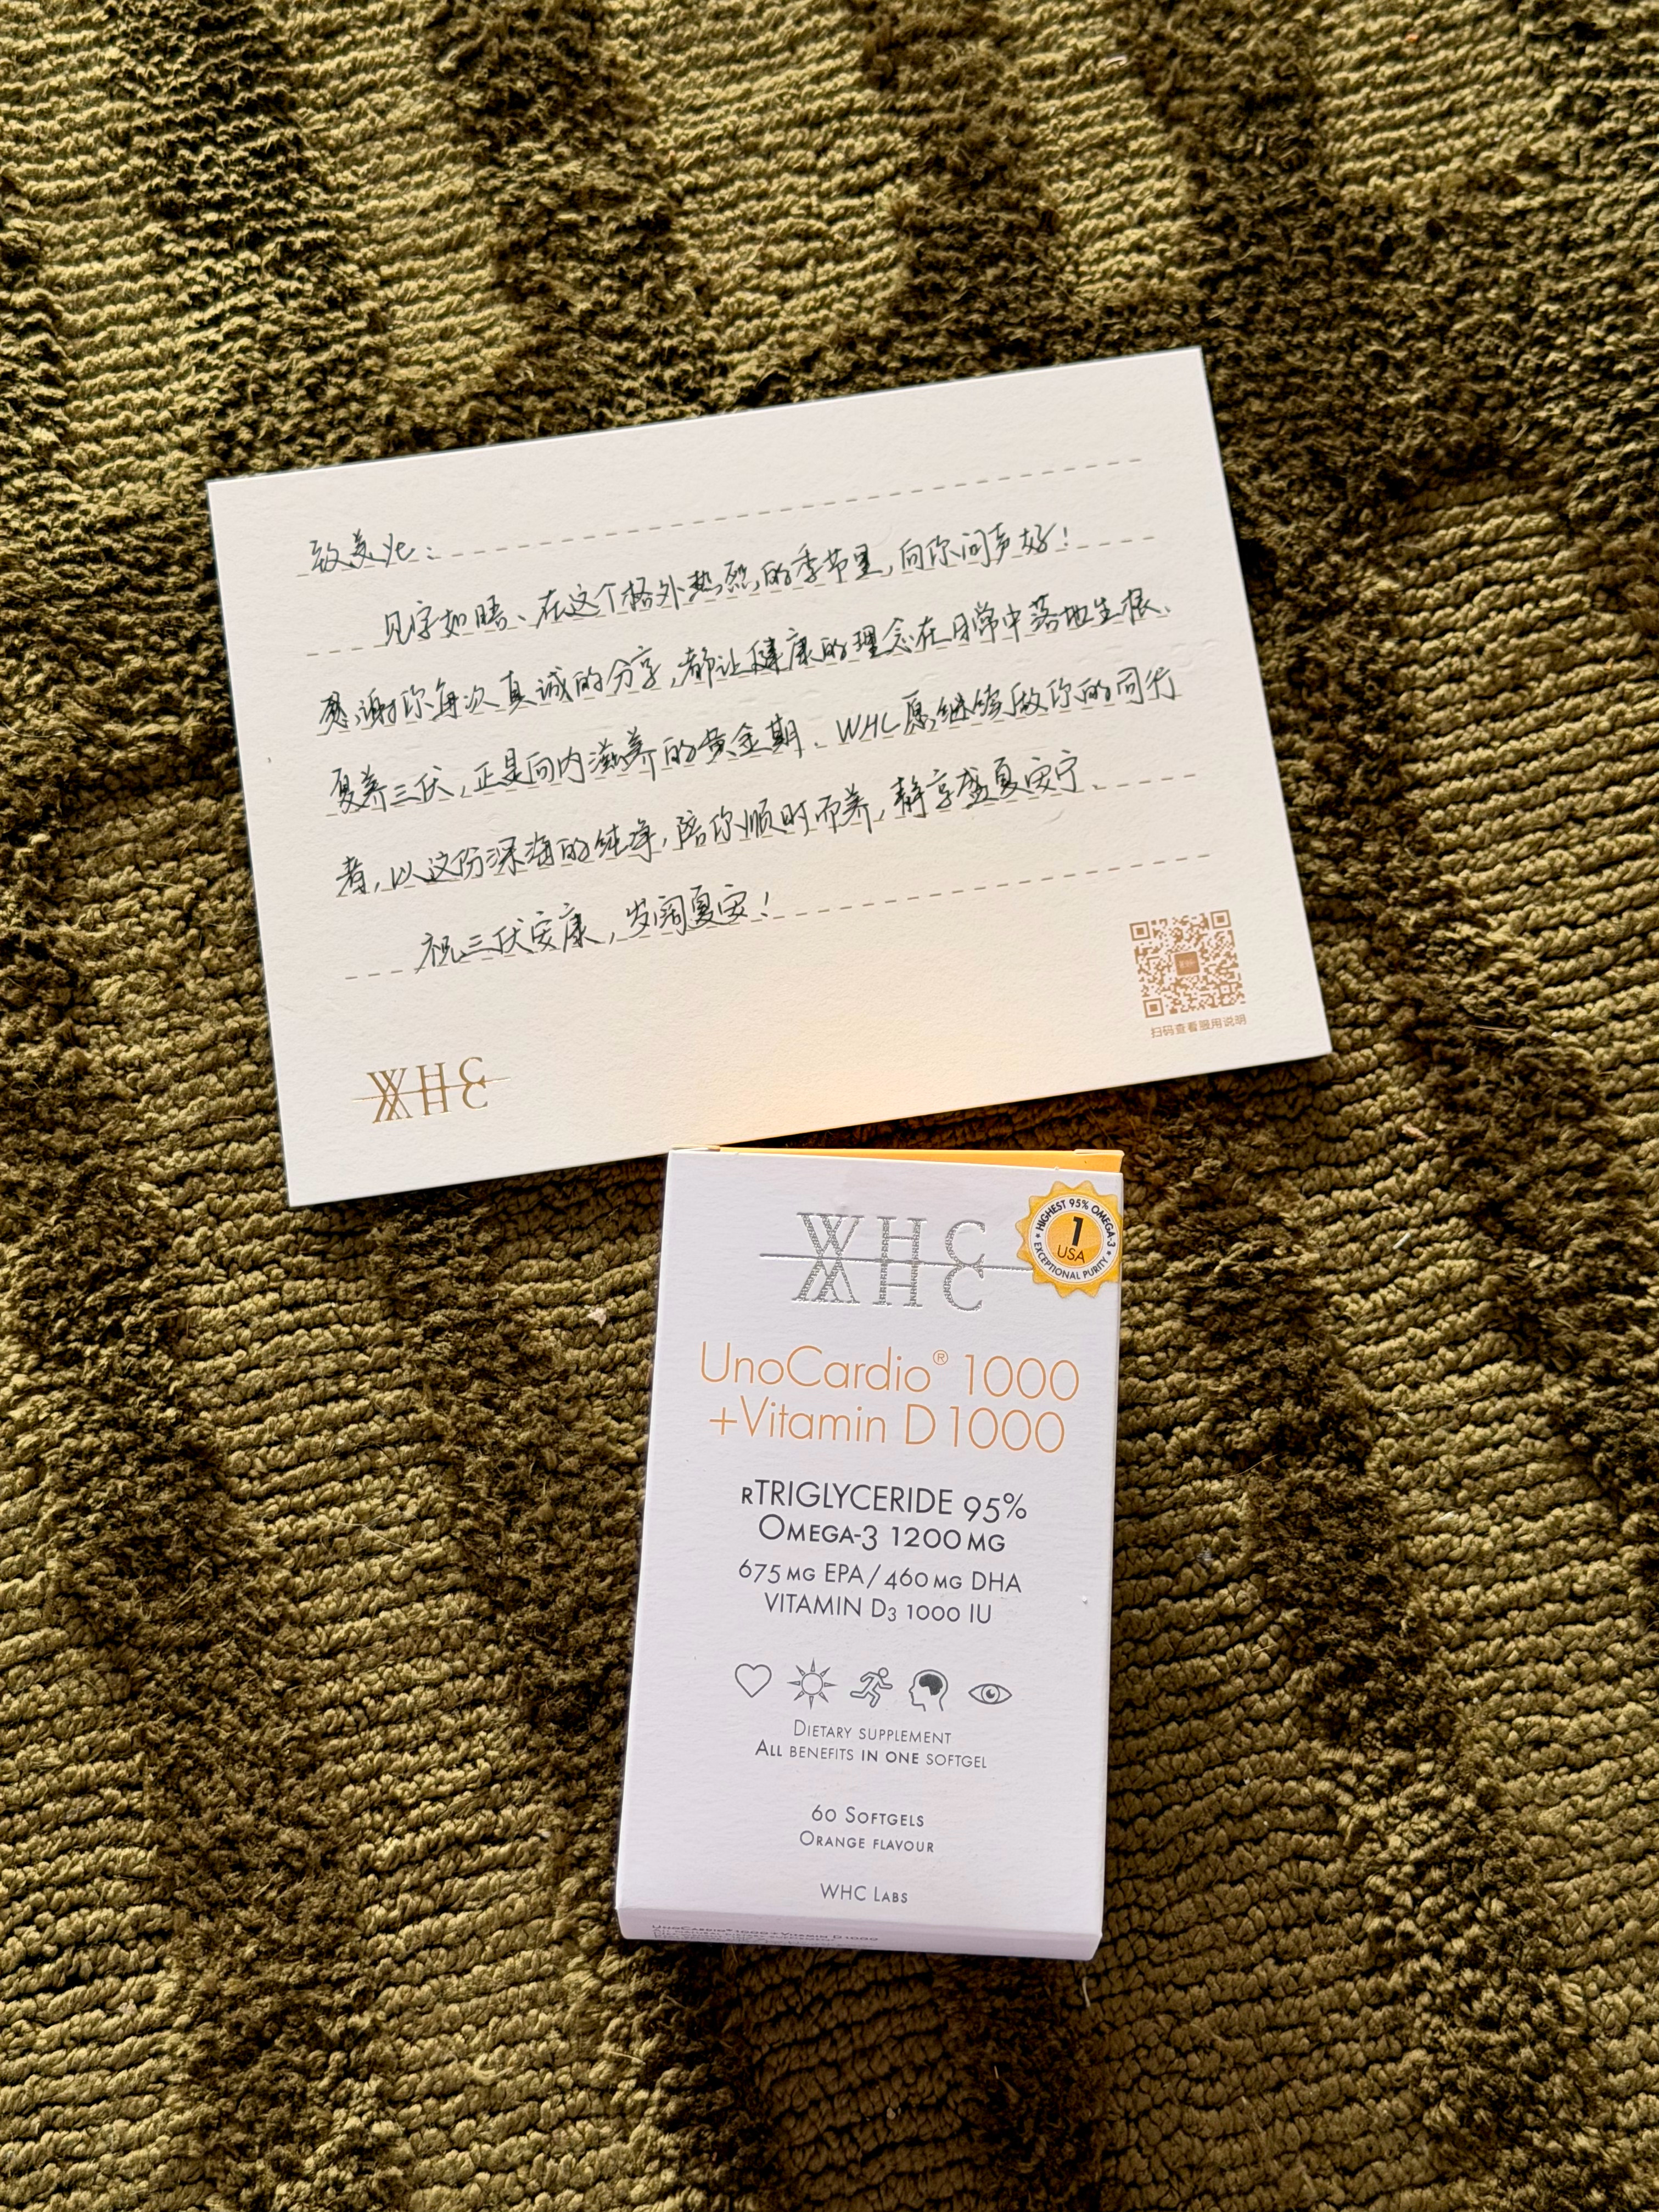 致美ye：
见字如晤、在这个格外热烈的季节里,向你问声好!
感谢你每次真诚的分享,都让健康的理念在日常中落地生根、
夏养三伏,正是向内滋养的黄金期、WHC愿继续做你的同行
者,以这份深海的纯净,陪你顺时而养,静享盛夏安宁、
祝三伏安康,岁阔夏安!
扫码查看服用说明
WHC
WHC
HIGHEST 95% OMEGA-3
1
USA
EXCEPTIONAL PURITY
UnoCardio® 1000
+Vitamin D 1000
rTRIGLYCERIDE 95%
OMEGA-3 1200 MG
675 MG EPA/460 MG DHA
VITAMIN D3 1000 IU
DIETARY SUPPLEMENT
ALL BENEFITS IN ONE SOFTGEL
60 SOFTGELS
ORANGE FLAVOUR
WHC LABS
UNOCARDIO® 1000 + VITAMIN D 1000